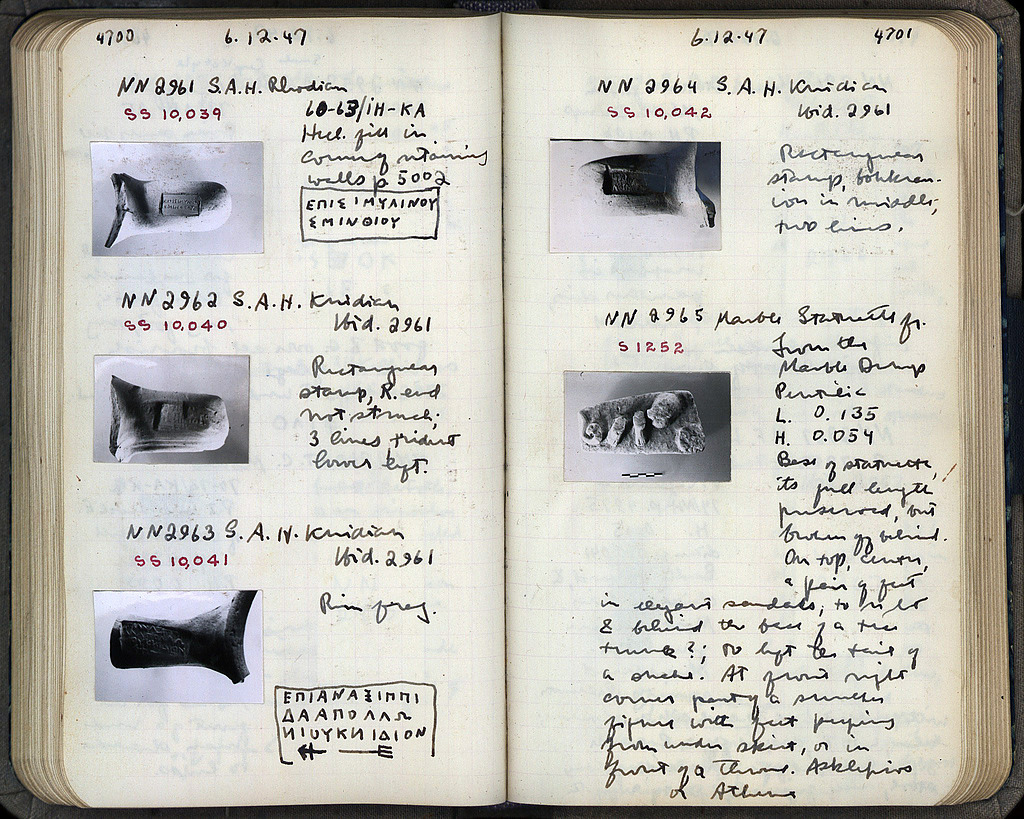 4700 6.12.47
NN 2961 S.A.H. Rhodian
SS 10,039 60-63/ΙΗ-ΚΑ
Hell. fill in
corner of retaining
walls p 5002
ΕΠΙΣΙΜΥΛΙΝΟΥ
ΣΜΙΝΘΙΟΥ
NN 2962 S.A.H. Knidian
SS 10,040 Ibid. 2961
Rectangular
stamp, R. end
not struck;
3 lines trident
lower left.
NN2963 S.A.H. Knidian
SS 10,041 Ibid. 2961
Rim frag.
ΕΠΙΑΝΑΞΙΠΠΙ
ΔΑΑΠΟΛΛΩ
ΝΙΟΥΚΝΙΔΙΟΝ
6.12.47 4701
NN 2964 S.A.H. Knidian
SS 10,042 Ibid. 2961
Rectangular
stamp, boukran-
ion in middle;
two lines.
NN 2965 Marble Statuette fr.
S 1252 From the
Marble Dump
Pentelic
L. 0.135
H. 0.054
Base of statuette,
its full length
preserved, but
broken off behind.
On top, center,
a pair of feet
in elegant sandals, to right
& behind the base of a tree
trunk?; to left the tail of
a snake. At front right
corner part of a smaller
figure with feet peeping
from under skirt, or in
front of a throne. Asklepios
or Athena